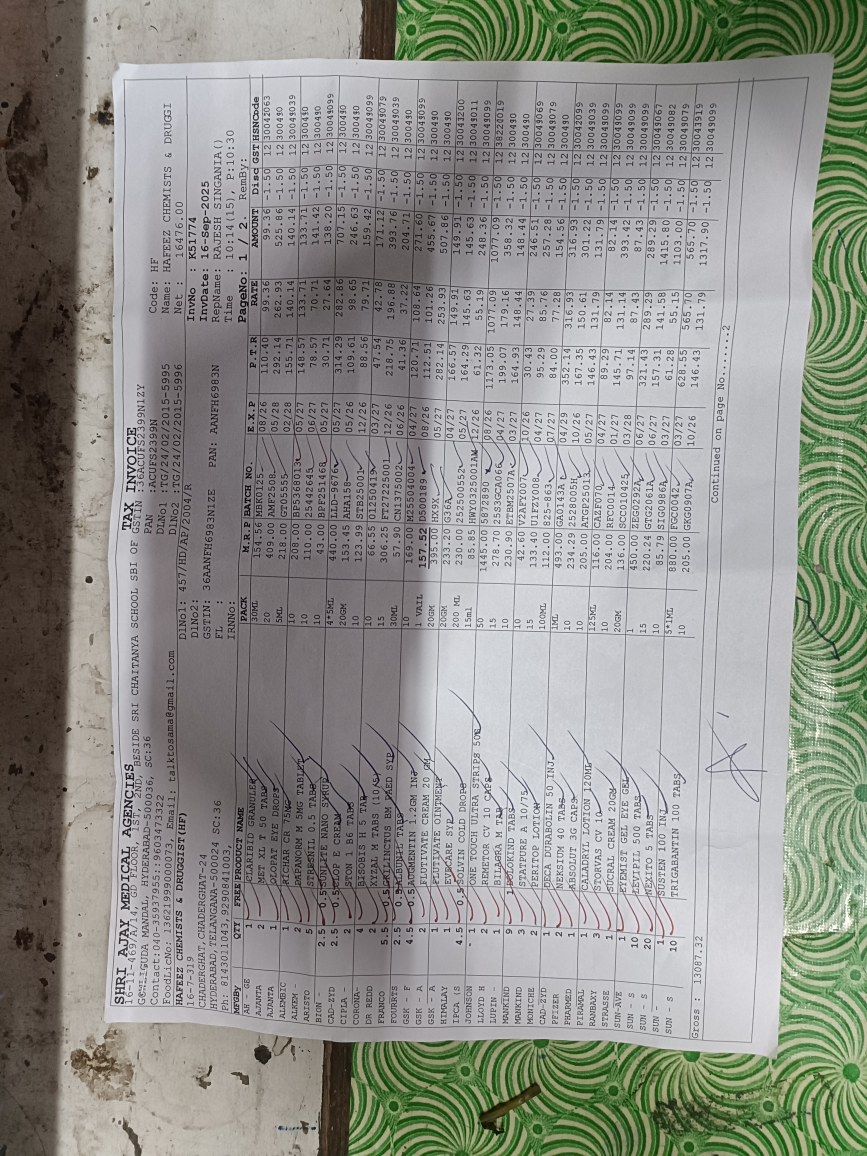 SHRI AJAY MEDICAL AGENCIES TAX INVOICE
16-11-469/A/14, GD FLOOR, 1ST. 2ND, BESIDE SRI CHAITANYA SCHOOL SBI OF GSTIN :36ACUFS2399N1ZY Code: HF
MANDAL, HYDERABAD-500036, SC:36 PAN :ACUFS2399N Name: HAFEEZ CHEMISTS & DRUGGI
Contact:040-35937955::9603473322 DLNO1 :TG/24/02/2015-5995 Net : 16476.00
FoodLicNo: 13621999000073, Email: talktosama@gmail.com DLNO2 :TG/24/02/2015-5996
HAFEEZ CHEMISTS & DRUGGIST(HF) DlNo1: 457/HD/AP/2004/R InvNo : K51774
16-7-319 DlNo2: InvDate: 16-Sep-2025
CHADERGHAT,CHADERGHAT-24 GSTIN: 36AANFH6983N1ZE PAN: AANFH6983N RepName: RAJESH SINGANIA()
HYDERABAD,TELANGANA-500024 SC:36 FL : Time : 10:14(15), P:10:30
Ph: 8143011043,9290864103, IRNNo: PageNo: 1 / 2. RemBy:
MFGBy QTY FREE PRODUCT NAME PACK M.R.P BATCH NO. E.X.P P.T.R RATE AMOUNT Disc GST HSNCode
AH - GE 1 CLARIBID GRANULES 30ML 154.56 MBK0125 08/26 110.40 99.36 99.36 -1.50 12 30042063
AJANTA 2 MET XL T 50 TABS 20 409.00 AMF2508 05/28 292.14 262.93 525.86 -1.50 12 300490
AJANTA 1 OLOPAT EYE DROPS 5ML 218.00 GT05555 02/28 155.71 140.14 140.14 -1.50 12 30049039
ALEMBIC 1 RICHAR CR 10 208.00 05/27 148.57 133.71 133.71 -1.50 12 300490
ALKEM 2 DAPANORM M 5MG TABLET 10 110.00 25442645 06/27 78.57 70.71 141.42 -1.50 12 300490
ARISTO 5 0.5 TABS 10 43.00 05/27 30.71 27.64 138.20 -1.50 12 30049099
BION - 2.5 0.5 NANO SYRUP 4*5ML 440.00 LLD-9676 05/27 314.29 282.86 707.15 -1.50 12 300490
CAD-ZYD 2.5 0.5 CREAM 20GM 153.45 AHA158 05/26 109.61 98.65 246.63 -1.50 12 300490
CIPLA - 2 1 B6 TABS 10 123.99 STB25001 12/26 88.56 79.71 159.42 -1.50 12 30049099
CORONA- 4 BISOBIS H 5 TAB 10 66.55 01250419 03/27 47.54 42.78 171.12 -1.50 12 30049079
DR REDD 2 XYZAL M TABS (10/5) 15 306.25 FT27225001 12/26 218.75 196.88 393.76 -1.50 12 30049039
FRANCO 5.5 0.5 BM PAED SYP 30ML 57.90 CN1375002 06/26 41.36 37.22 204.71 -1.50 12 300490
FOURRTS 2.5 0.5 ALBUNIL TABS 10 169.00 M25504004 04/27 120.71 108.64 271.60 -1.50 12 30049099
GSK - F 4.5 0.5 AUGMENTIN 1.2GM INJ 1 VAIL 157.52 D500189 08/26 112.51 101.26 455.67 -1.50 12 300490
GSK - A 2 FLUTIVATE CREAM 20 GM 20GM 395.00 HX9X 05/27 282.14 253.93 507.86 -1.50 12 300490
GSK - A 1 FLUTIVATE OINTMENT 20GM 233.20 04/27 166.57 149.91 149.91 -1.50 12 30043200
HIMALAY 1 EVECARE SYP 200 ML 230.00 252500552 05/27 164.29 145.63 145.63 -1.50 12 30049011
IPCA (S 4.5 0.5 SOLVIN COLD DROPS 15ml 85.85 HWY0325001AM 12/26 61.32 55.19 248.36 -1.50 12 30049099
JOHNSON 1 ONE TOUCH ULTRA STRIPS 50S 50 1445.00 5872830 08/26 1173.05 1077.09 1077.09 -1.50 12 38220019
LLOYD H 2 REMETOR CV 10 CAPS 15 278.70 25S3GCA066 04/27 199.07 179.16 358.32 -1.50 12 300490
LUPIN - 1 BILAGRA M TAB 10 230.90 ETBM2507A 03/27 164.93 148.44 148.44 -1.50 12 300490
MANKIND 9 DOLOKIND TABS 10 42.60 V2AFY007 10/26 30.43 27.39 246.51 -1.50 12 300490
MANKIND 3 STATPURE A 10/75 15 133.40 U1FZY008 04/27 95.29 85.76 257.28 -1.50 12 30049069
MONICHE 2 PERITOP LOTION 100ML 112.00 825-863 07/27 84.00 77.28 154.56 -1.50 12 30049079
CAD-ZYD 1 DECA DURABOLIN 50 INJ 1ML 493.00 GA0143A1 04/29 352.14 316.93 316.93 -1.50 12 300490
PFIZER 2 NEKSIUM 40 TABS 10 234.29 2528005H 10/26 167.35 150.61 301.22 -1.50 12 30042099
PHARMED 1 ABSOLUT 3G CAPS 10 205.00 ATGP25013 05/27 146.43 131.79 131.79 -1.50 12 30049039
PIRAMAL 1 CALADRYL LOTION 120ML 125ML 116.00 CA2F070 04/27 89.29 82.14 82.14 -1.50 12 30049099
RANBAXY 3 STORVAS CV 10 10 204.00 RFC0014 01/27 145.71 131.14 393.42 -1.50 12 30049099
STRASSE 1 SUCRAL CREAM 20GM 20GM 136.00 SCC010425 03/28 97.14 87.43 87.43 -1.50 12 30049099
SUN-AVE 1 EYEMIST GEL EYE GEL 1 450.00 ZEG0292A 06/27 321.43 289.29 289.29 -1.50 12 30049099
SUN - S 10 LEVIPIL 500 TABS 15 220.24 GTG2061A 06/27 157.31 141.58 1415.80 -1.50 12 30049067
SUN - S 20 NEXITO 5 TABS 10 85.79 SIG0986A 03/27 61.28 55.15 1103.00 -1.50 12 30049082
SUN - 1 SUSTEN 100 INJ 5*1ML 880.00 FGC0042 03/27 628.55 565.70 565.70 -1.50 12 30049079
SUN - S 10 TRIGABANTIN 100 TABS 10 205.00 GKG0907A 10/26 146.43 131.79 1317.90 -1.50 12 30049099
Gross : 13087.32 Continued on page No.......2